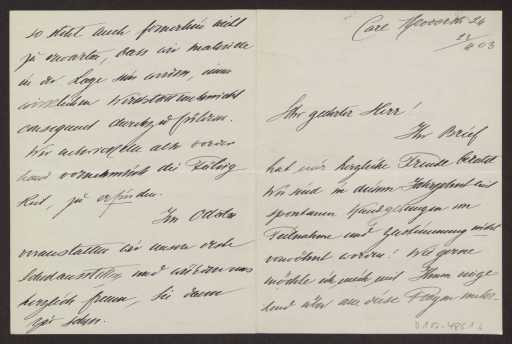 22/4 03
Sehr geehrter Herr!
Ihr Brief
hat mir herzliche Freude bereitet
Wir sind in diesem
spontanen Kundgebungen von
Teilnahme und Zustimmung nicht
verwöhnt worden! Wie gerne
möchte ich mich mit Ihnen einge
hend über alle diese Fragen unter-
so steht auch fernerhin nicht
zu erwarten, dass wir materiell
in der Lage sein werden, einen
wirklichen Werkstattunterricht
consequent durchzuführen.
Wir unterrichten also vorder
hand vornehmlich die Fähig
keit, zu erfinden.
Im October
veranstalten wir unsere erste
Schulausstellung und würden uns
herzlich freuen, Sie dann
hier sehen.